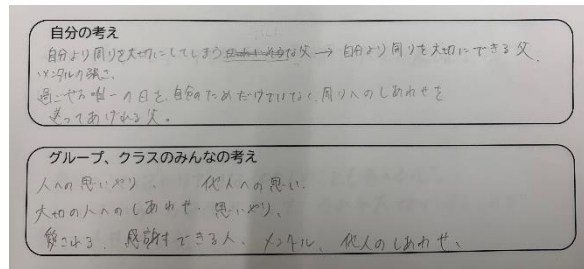 自分の考え
自分より周りを大切にしてしまう な父 → 自分より周りを大切にできる父
メンタルの強さ、
過ごせる唯一の日を、自分のためだけではなく、周りへのしあわせを
送ってあげれる父。
グループ、クラスのみんなの考え
人への思いやり 他人への思い、
大切の人へのしあわせ・思いやり、
愛される、感謝できる人、メンタル、他人のしあわせ、